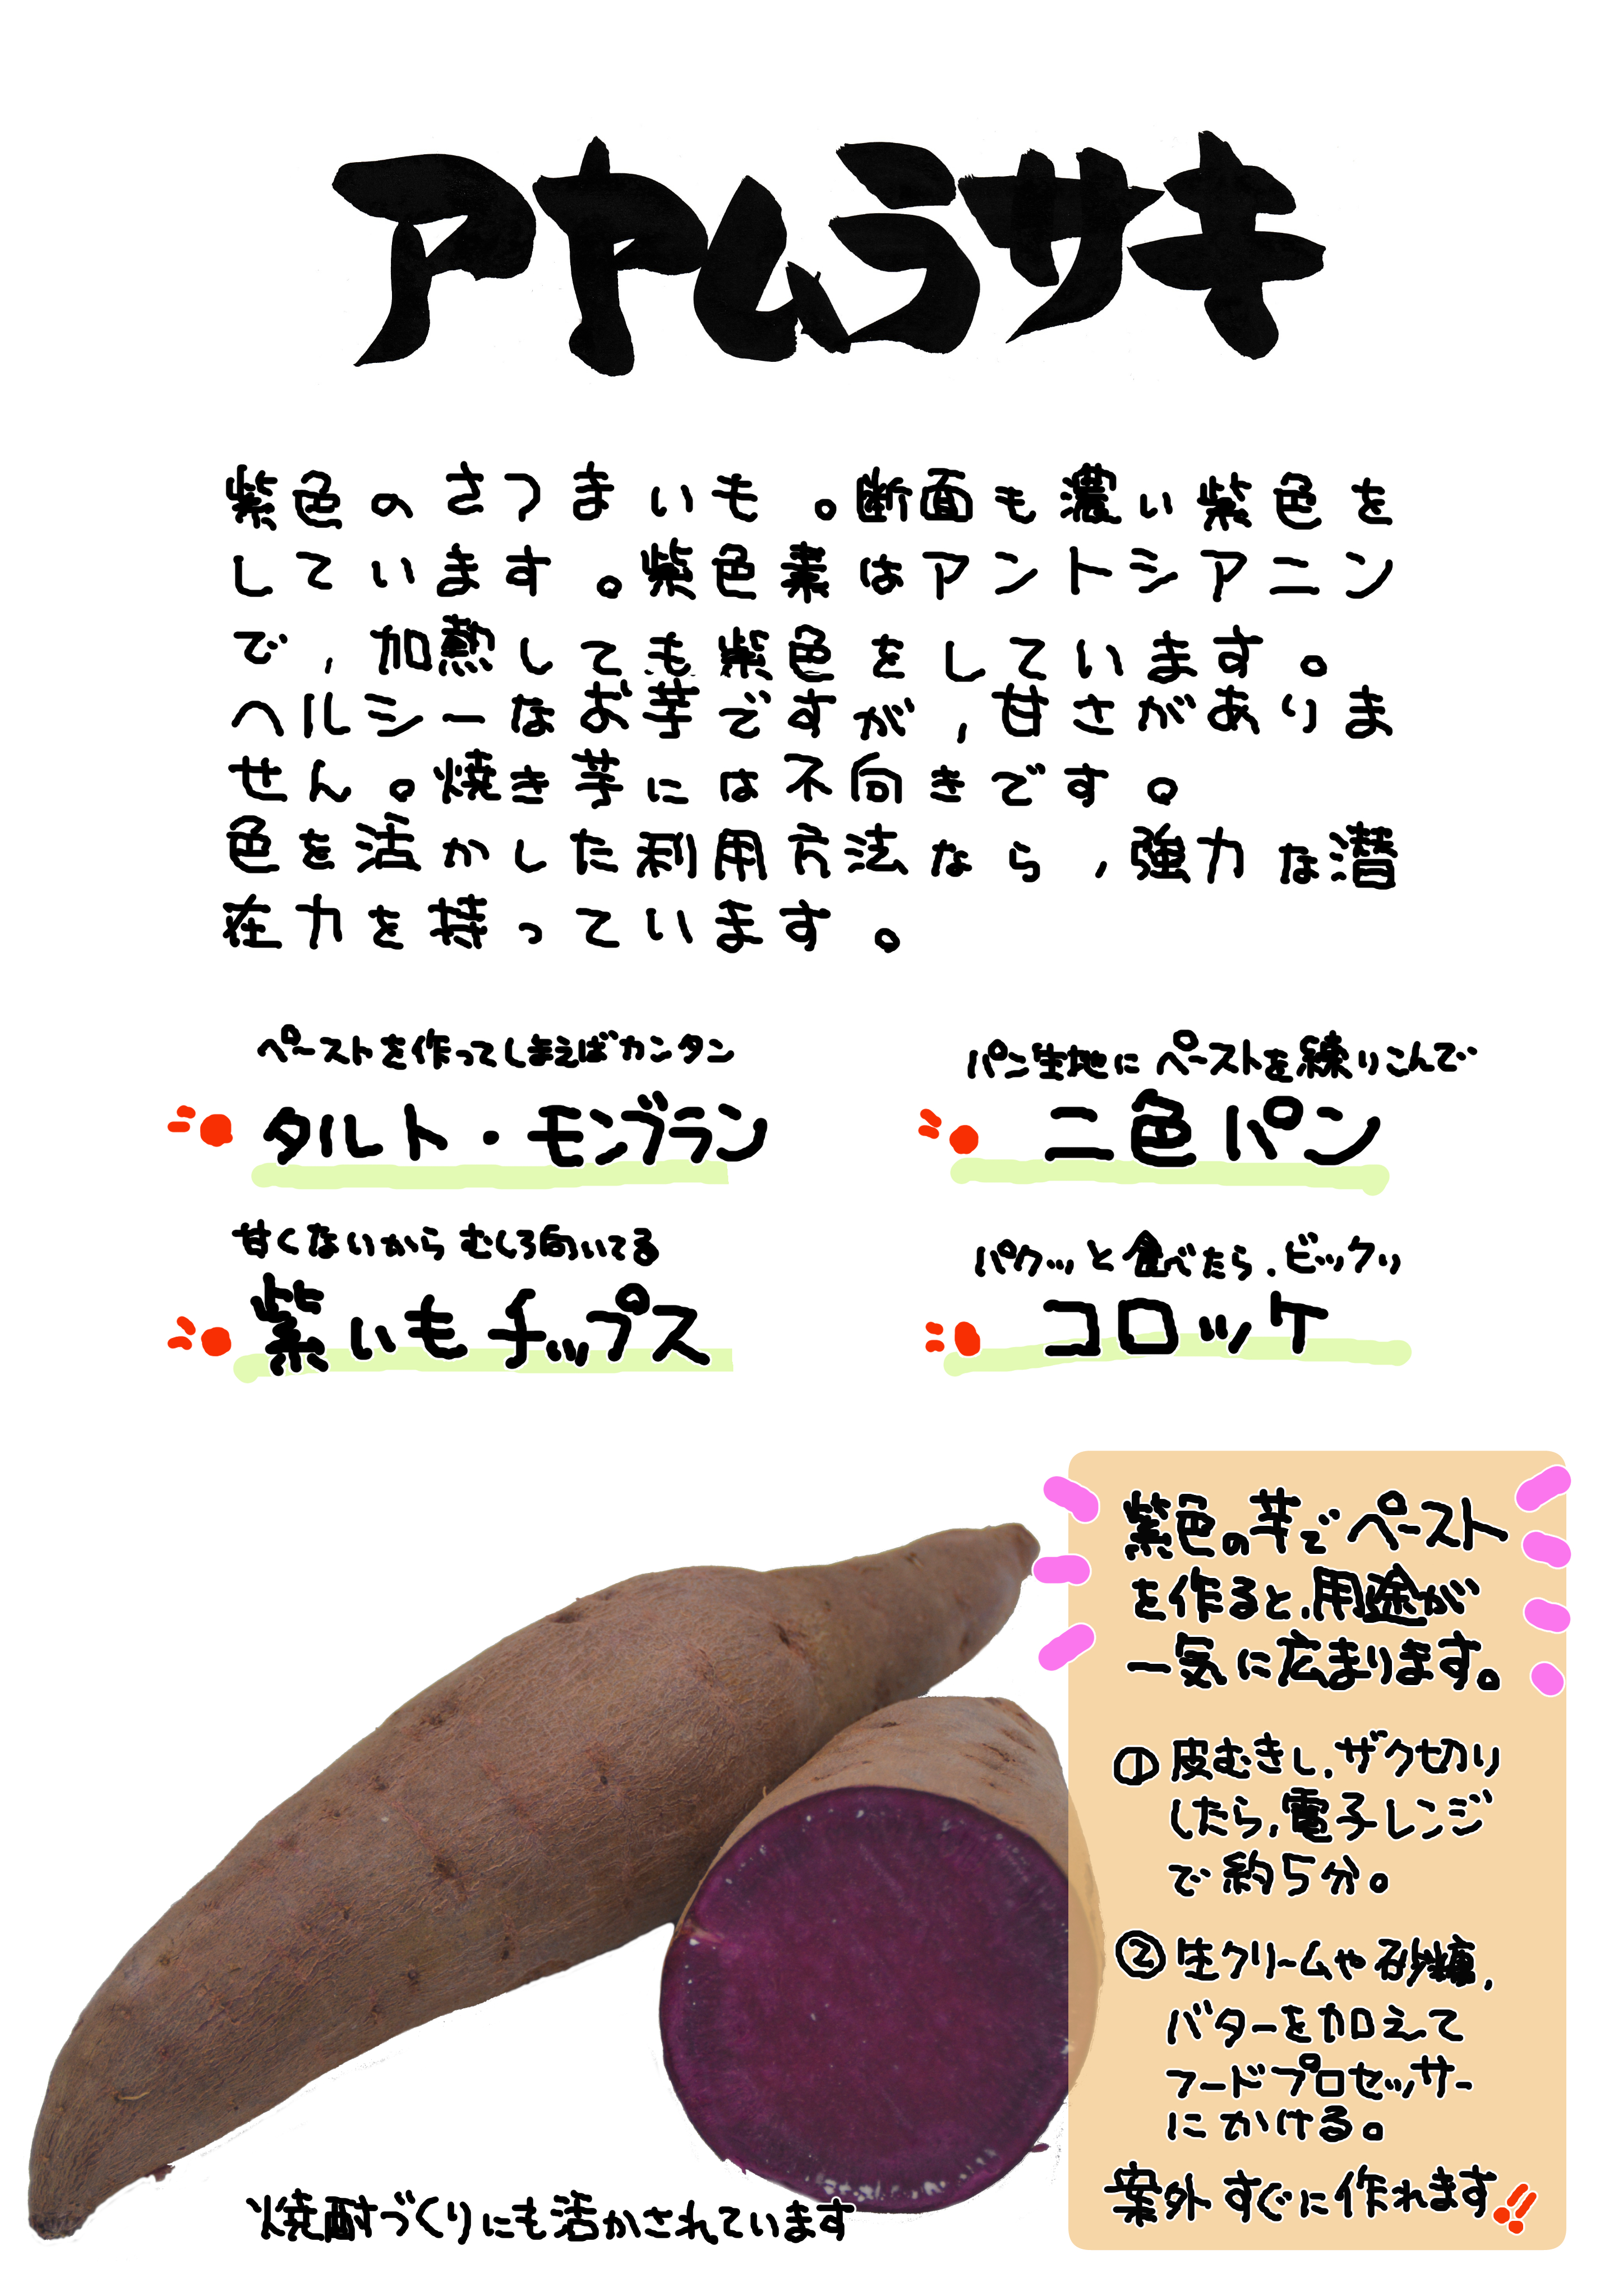 アヤムラサキ
紫色のさつまいも。断面も濃い紫色を
しています。紫色素はアントシアニン
で，加熱しても紫色をしています。
ヘルシーなお芋ですが，甘さがありま
せん。焼き芋には不向きです。
色を活かした利用方法なら，強力な潜
在力を持っています。
ペーストを作ってしまえばカンタン
タルト・モンブラン
パン生地にペーストを練りこんで
二色パン
甘くないから むしろ向いてる
紫いもチップス
パクッと食べたら、ビックリ
コロッケ
紫色の芋でペースト
を作ると、用途が
一気に広まります。
①皮むきし、ザク切り
したら，電子レンジ
で約5分。
②生クリームや砂糖，
バターを加えて
フードプロセッサー
にかける。
案外すぐに作れます!!
焼酎づくりにも活かされています